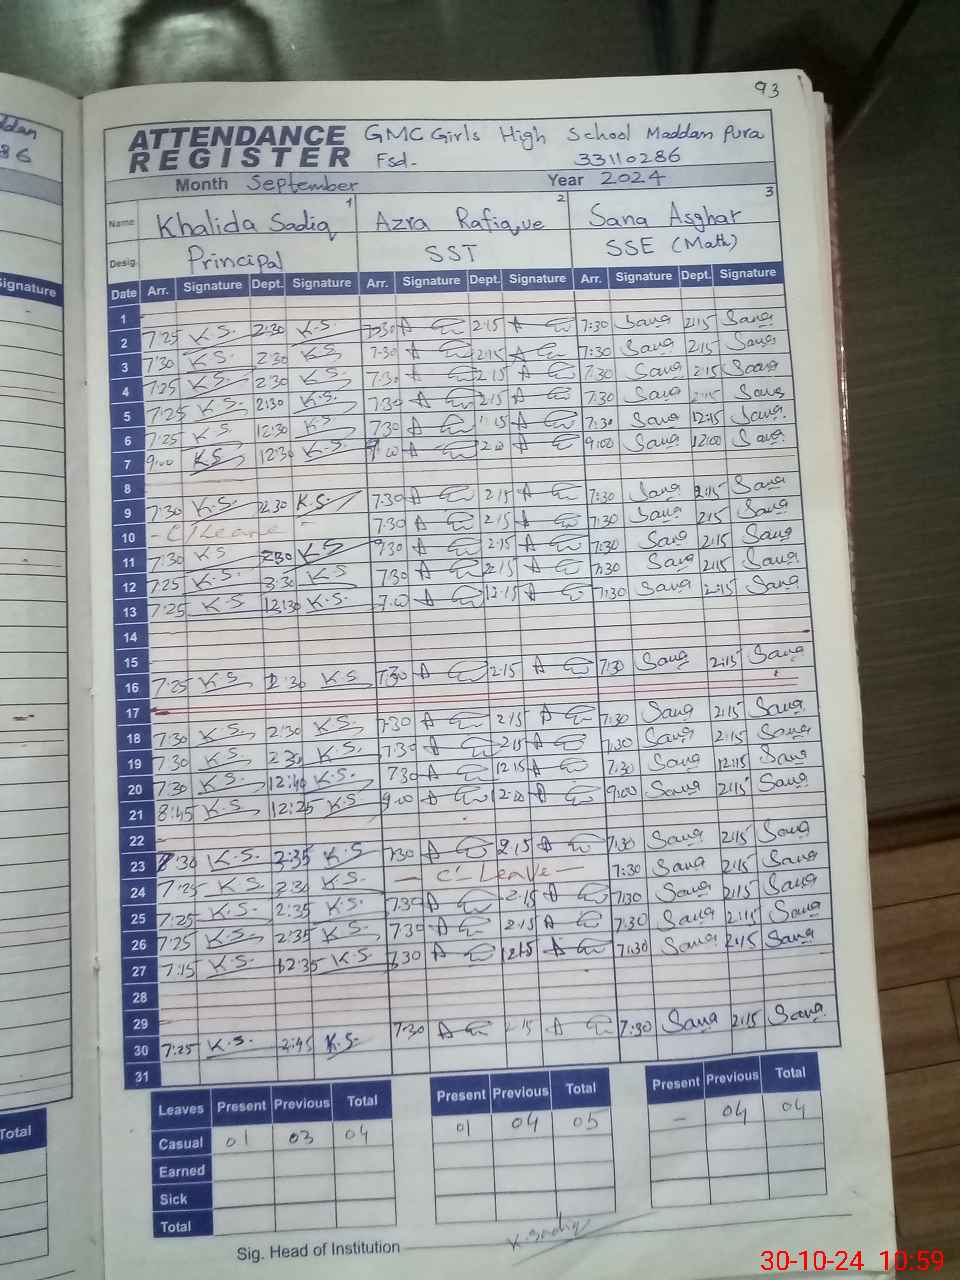 93
ddan
86
ATTENDANCE REGISTER
GMC Girls High School Maddan Pura
Fsd- 33110286
Month September Year 2024
1 2 3
Name Khalida Sadiq Azra Rafique Sana Asghar
Desig. Principal SST SSE (Math)
Signature
Date Arr. Signature Dept. Signature Arr. Signature Dept. Signature Arr. Signature Dept. Signature
1
2 7:25 K.S. 2:30 K.S. 7:30 A 2:15 A 7:30 Sana 2:15 Sana
3 7:30 K.S. 2:30 K.S 7:30 A 2:15 A 7:30 Sana 2:15 Sana
4 7:25 K.S. 2:30 K.S. 7:30 A 2:15 A 7:30 Sana 2:15 Sana
5 7:25 K.S. 2:30 K.S. 7:30 A 2:15 A 7:30 Sana Sana
6 7:25 K.S 12:30 K.S 7:30 A A 7:30 Sana 12:15 Sana
7 9:00 K.S 12:30 K.S. A A 9:00 Sana 12:00 Sana
8
9 7:30 K.S. 2:30 K.S. 7:30 A 2:15 A 7:30 Sana 2:15 Sana
10 - C/Leave - 7:30 A 2:15 A 7:30 Sana 2:15 Sana
11 7:30 K.S 2:30 K.S A 2:15 A 7:30 Sana 2:15 Sana
12 7:25 K.S. 3:30 K.S 7:30 A 2:15 A 7:30 Sana 2:15 Sana
13 7:25 K.S 12:30 K.S. A 12:15 A 7:30 Sana 2:15 Sana
14
15
16 7:25 K.S 2:30 K.S 7:30 A 2:15 A 7:30 Sana 2:15 Sana
17
18 7:30 K.S. 2:30 K.S. 7:30 A 2:15 A 7:30 Sana 2:15 Sana
19 7:30 K.S. 2:30 K.S. 7:30 A 2:15 A 7:30 Sana 2:15 Sana
20 7:30 K.S. 12:40 K.S. 7:30 A 12:15 A 7:30 Sana 12:15 Sana
21 8:45 K.S. 12:25 K.S 9:00 A A 9:00 Sana 2:15 Sana
22
23 7:30 K.S. 2:35 K.S 7:30 A 2:15 A 7:30 Sana 2:15 Sana
24 7:25 K.S. 2:30 K.S. - C' Leave - 7:30 Sana 2:15 Sana
25 7:25 K.S. 2:35 K.S. 7:30 A 2:15 A 7:30 Sana 2:15 Sana
26 7:25 K.S. 2:35 K.S. 7:30 A 2:15 A 7:30 Sana 2:15 Sana
27 7:15 K.S. 12:35 K.S. 7:30 A 12:15 A 7:30 Sana 2:15 Sana
28
29
30 7:25 K.S. 2:45 K.S. 7:30 A 2:15 A 7:30 Sana 2:15 Sana
31
Total
Leaves Present Previous Total Present Previous Total Present Previous Total
Casual 01 03 04 01 04 05 - 04 04
Earned
Sick
Total
Sig. Head of Institution K. Sadiq
30-10-24 10:59